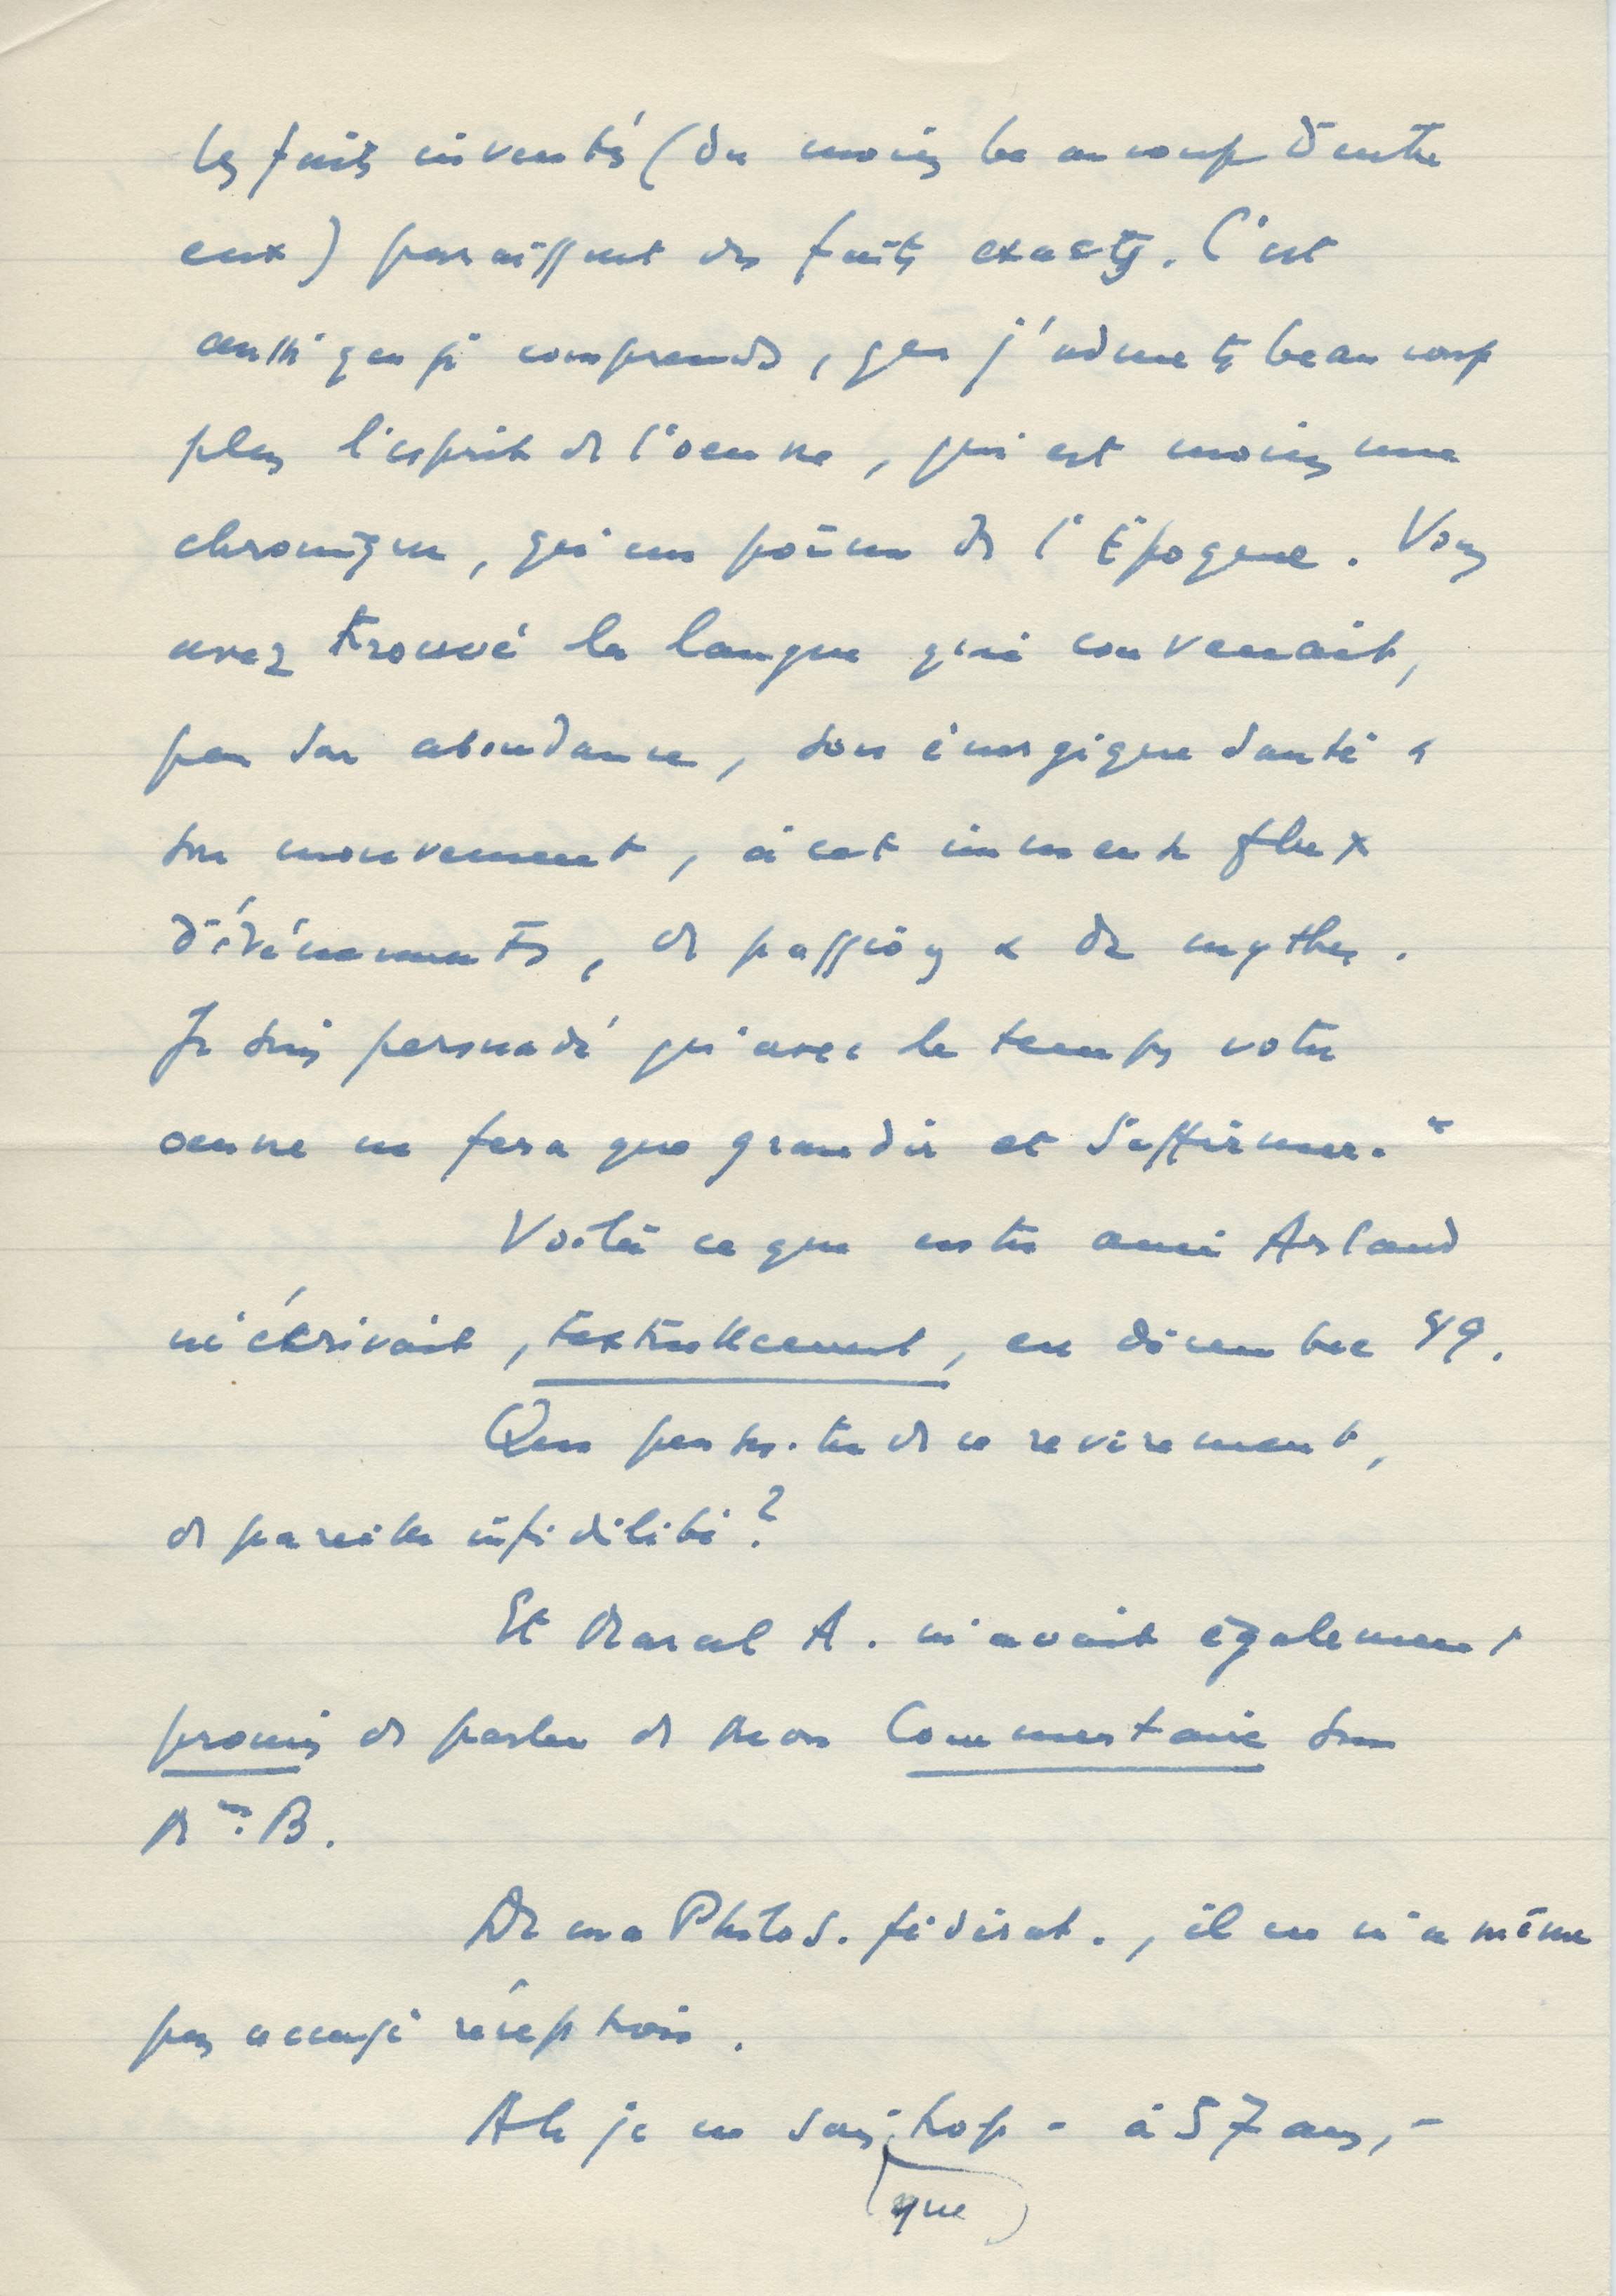 les faits inventés (du moins beaucoup d'entre
eux) paraissent des faits exacts. C'est
aussi que je comprends, que j'admets beaucoup
plus l'esprit de l'oeuvre, qui est moins une
chronique, qu'un poème de l'Epoque. Vous
avez trouvé la langue qui convenait,
par son abondance, son énergique santé &
son mouvement, à cet immense flux
d'événements, de passions & de mythes.
Je suis persuadé qu'avec le temps votre
oeuvre ne fera que grandir et s'affirmer."
Voilà ce que notre ami Arland
m'écrivait, textuellement, en décembre 49.
Que penses-tu de ce revirement,
de pareille infidélité?
Et Marcel A. m'avait également
promis de parler de mon Commentaire sur
Mme. B.
De ma Philos. fédérat., il ne m'a même
pas accusé réception.
Ah je ne sais trop - à 57 ans, -
que